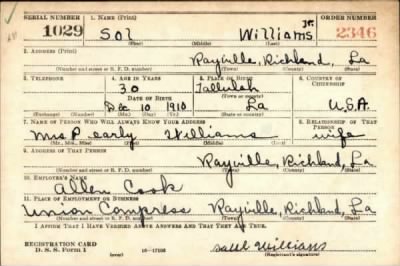 SERIAL NUMBER 1. NAME (Print) ORDER NUMBER
1029 Sol Williams Jr. 2346
(First) (Middle) (Last)
2. ADDRESS (Print)
Rayville, Richland, La
(Number and street or R. F. D. number) (Town) (County) (State)
3. TELEPHONE 4. AGE IN YEARS 5. PLACE OF BIRTH 6. COUNTRY OF CITIZENSHIP
30 Tallulah
DATE OF BIRTH (Town or county)
Dec 10 1910 La U.S.A.
(Exchange) (Number) (Mo.) (Day) (Yr.) (State or country)
7. NAME OF PERSON WHO WILL ALWAYS KNOW YOUR ADDRESS 8. RELATIONSHIP OF THAT PERSON
Mrs Pearly Williams wife
(Mr., Mrs., Miss) (First) (Middle) (Last)
9. ADDRESS OF THAT PERSON
Rayville, Richland, La
(Number and street or R. F. D. number) (Town) (County) (State)
10. EMPLOYER'S NAME
Allen Cook
11. PLACE OF EMPLOYMENT OR BUSINESS
Union Compress Rayville, Richland, La
(Number and street or R. F. D. number) (Town) (County) (State)
I AFFIRM THAT I HAVE VERIFIED ABOVE ANSWERS AND THAT THEY ARE TRUE.
REGISTRATION CARD
D. S. S. Form 1 (over) 16—17105 Williams
(Registrant's signature)